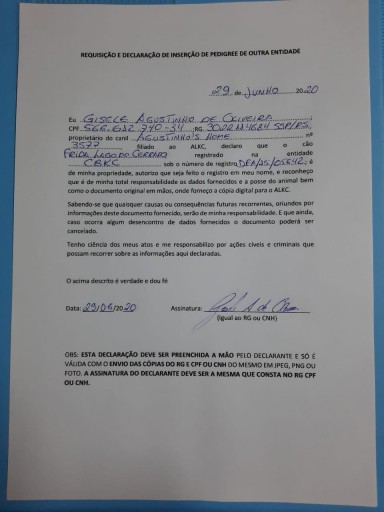 REQUISIÇÃO E DECLARAÇÃO DE INSERÇÃO DE PEDIGREE DE OUTRA ENTIDADE
29 de JUNHO 2020
Eu GISELE AGUSTINHO DE OLIVEIRA
CPF RG SSP/RS,
proprietário do canil AGUSTINHO'S HOME nº
3577 filiado ao ALKC, declaro que o cão
FRIDA LAGO DO CERRADO registrado na entidade
CBKC sob o número de registro, é
de minha propriedade, autorizo que seja feito o registro em meu nome, e reconheço
que é de minha total responsabilidade os dados fornecidos e a posse do animal bem
como o documento original em mãos, onde forneço a cópia digital para o ALKC.
Sabendo-se que quaisquer causas ou consequências futuras recorrentes, oriundos por
informações deste documento fornecido, serão de minha responsabilidade. E que ainda,
caso ocorra algum desencontro de dados fornecidos o documento poderá ser
cancelado.
Tenho ciência dos meus atos e me responsabilizo por ações cíveis e criminais que
possam recorrer sobre as informações aqui declaradas.
O acima descrito é verdade e dou fé
Data: 29/06/2020 Assinatura:
(Igual ao RG ou CNH)
OBS: ESTA DECLARAÇÃO DEVE SER PREENCHIDA A MÃO PELO DECLARANTE E SÓ É
VÁLIDA COM O ENVIO DAS CÓPIAS DO RG E CPF OU CNH DO MESMO EM JPEG, PNG OU
FOTO. A ASSINATURA DO DECLARANTE DEVE SER A MESMA QUE CONSTA NO RG CPF
OU CNH.